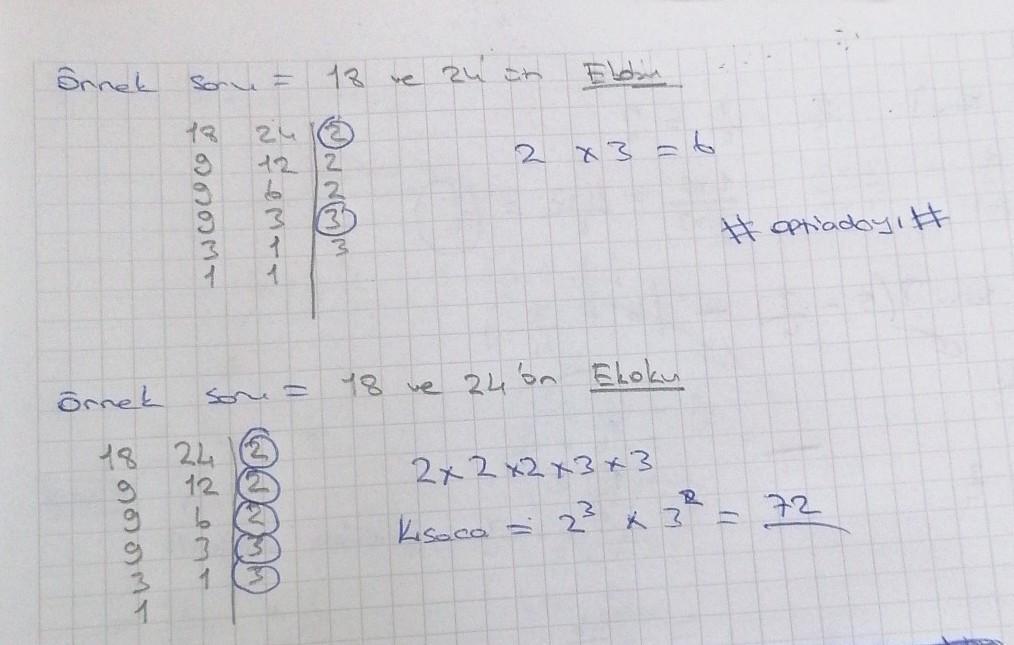 Örnek soru = 18 ve 24'ün Ebobu
18 24 2
9 12 2
9 6 2
9 3 3
3 1 3
1 1
2 x 3 = 6
Örnek soru = 18 ve 24'ün Ekoku
18 24 2
9 12 2
9 6 2
9 3 3
3 1 3
1
2 x 2 x 2 x 3 x 3
Kısaca = 2³ x 3² = 72